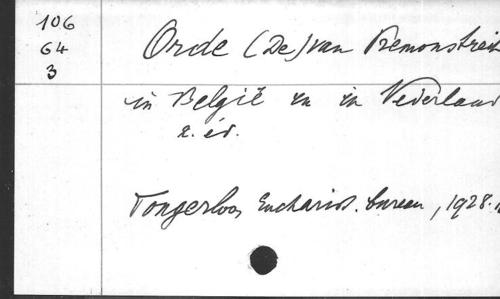 106
64
3
Orde (De) van Premonstreit
in België en in Nederland
2. éd.
Tongerloo, Eucharist. bureau, 1928.